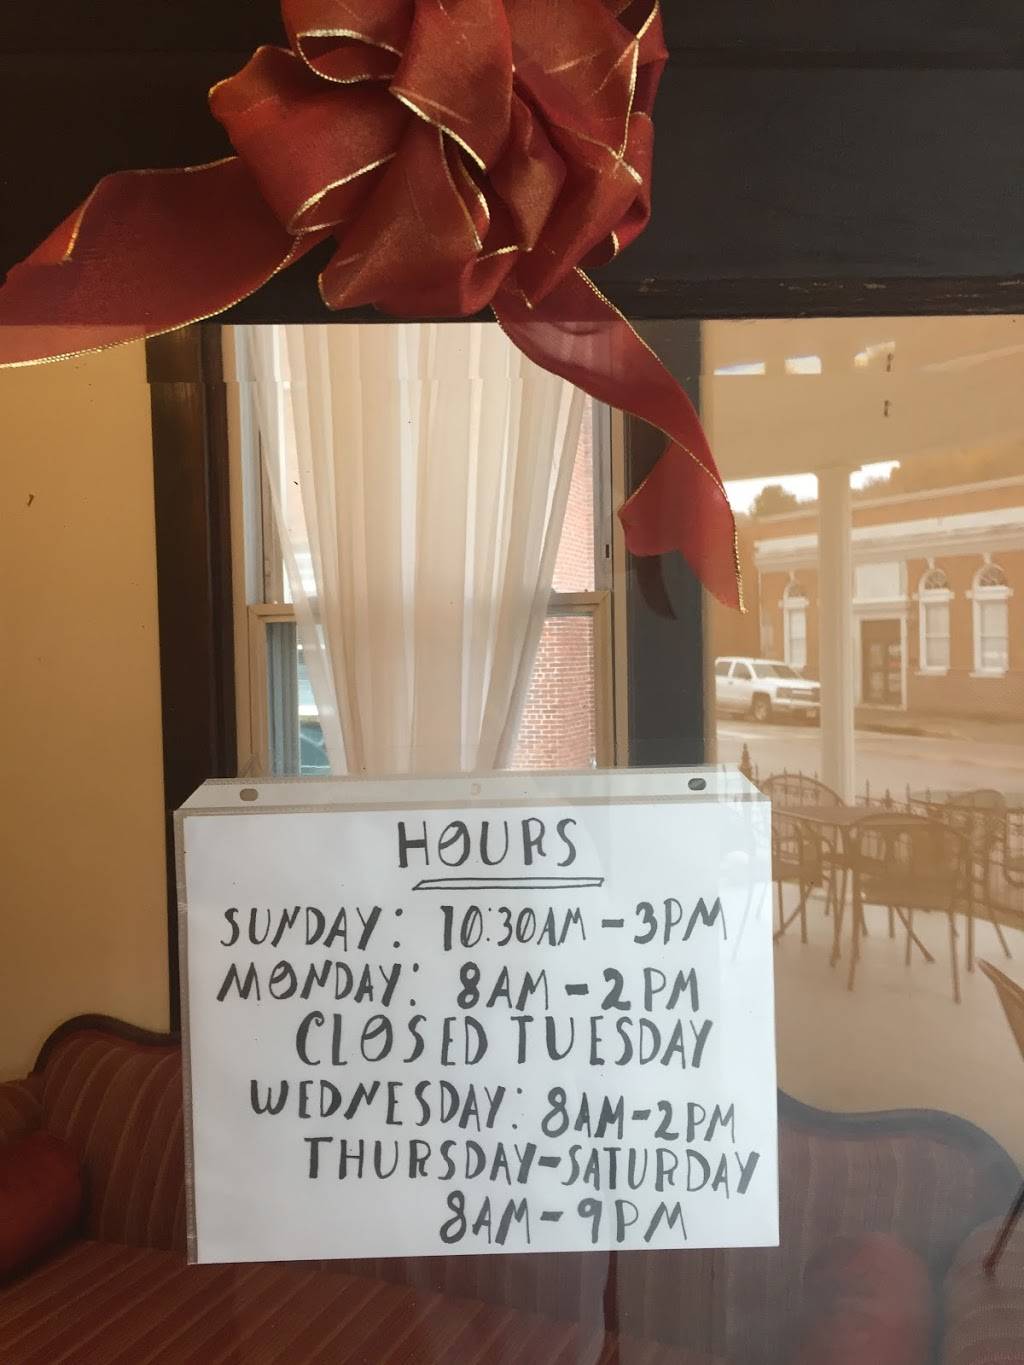 HOURS
SUNDAY: 10:30AM - 3PM
MONDAY: 8AM - 2PM
CLOSED TUESDAY
WEDNESDAY: 8AM - 2PM
THURSDAY - SATURDAY
8AM - 9PM